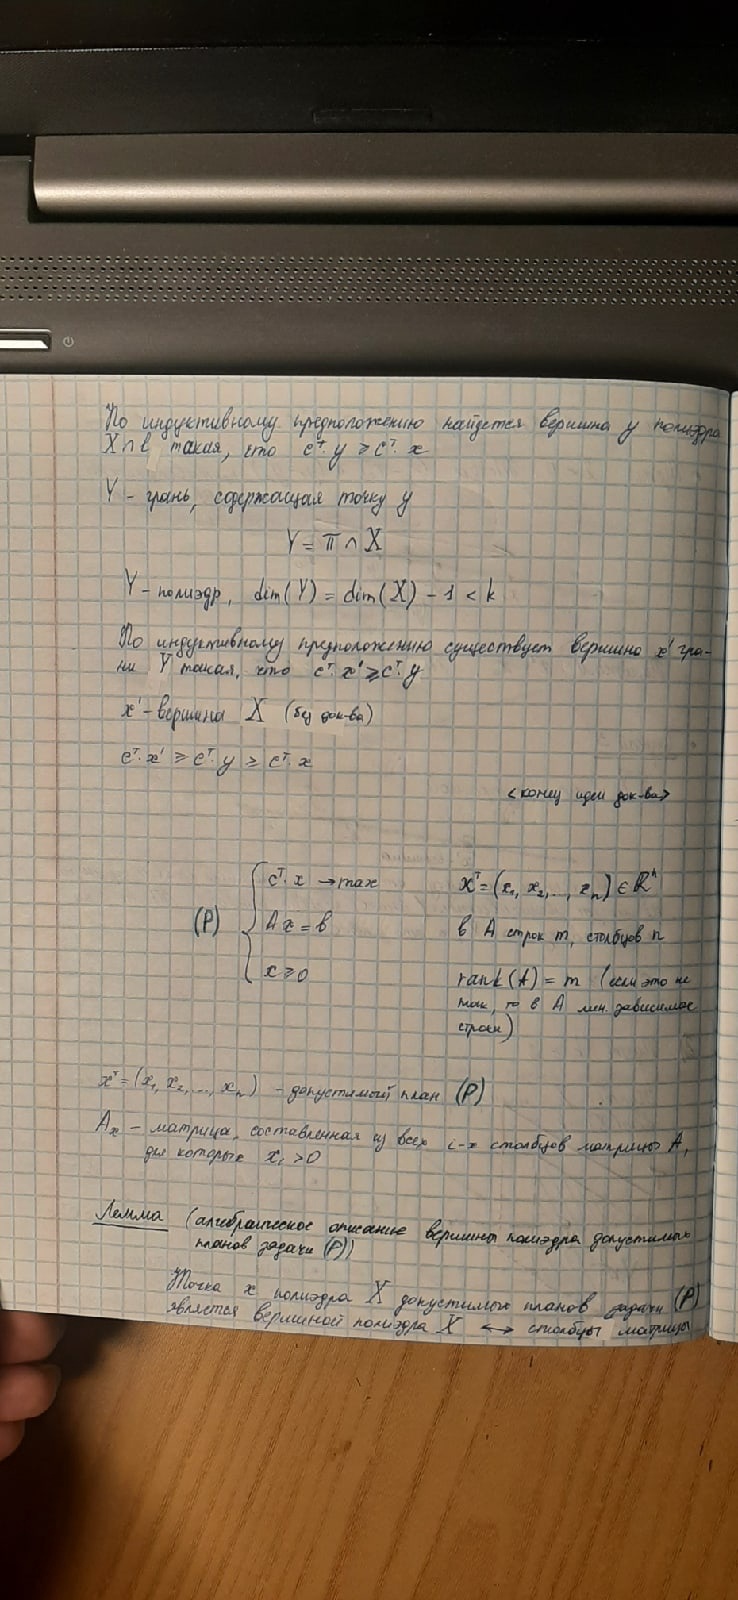 По индуктивному предположению найдется вершина y полиэдра
X ∩ l такая, что cᵀ·y ≥ cᵀ·x
Y - грань, содержащая точку y
Y = π ∩ X
Y - полиэдр, dim(Y) = dim(X) - 1 < k
По индуктивному предположению существует вершина x' гра-
ни Y такая, что cᵀ·x' ≥ cᵀ·y
x' - вершина X (без док-ва)
cᵀ·x' ≥ cᵀ·y ≥ cᵀ·x
<конец идеи док-ва>
(P) { cᵀ·x → max xᵀ = (x₁, x₂, ..., xₙ) ∈ ℝⁿ
Ax = b в A строк m, столбцов n
x ≥ 0 rank(A) = m (если это не
так, то в A лин. зависимые
строки)
xᵀ = (x₁, x₂, ..., xₙ) - допустимый план (P)
Aₓ - матрица, составленная из всех i-х столбцов матрицы A,
для которых xᵢ > 0
Лемма (алгебраическое описание вершины полиэдра допустимых
планов задачи (P))
Точка x полиэдра X допустимых планов задачи (P)
является вершиной полиэдра X ↔ столбцы матрицы